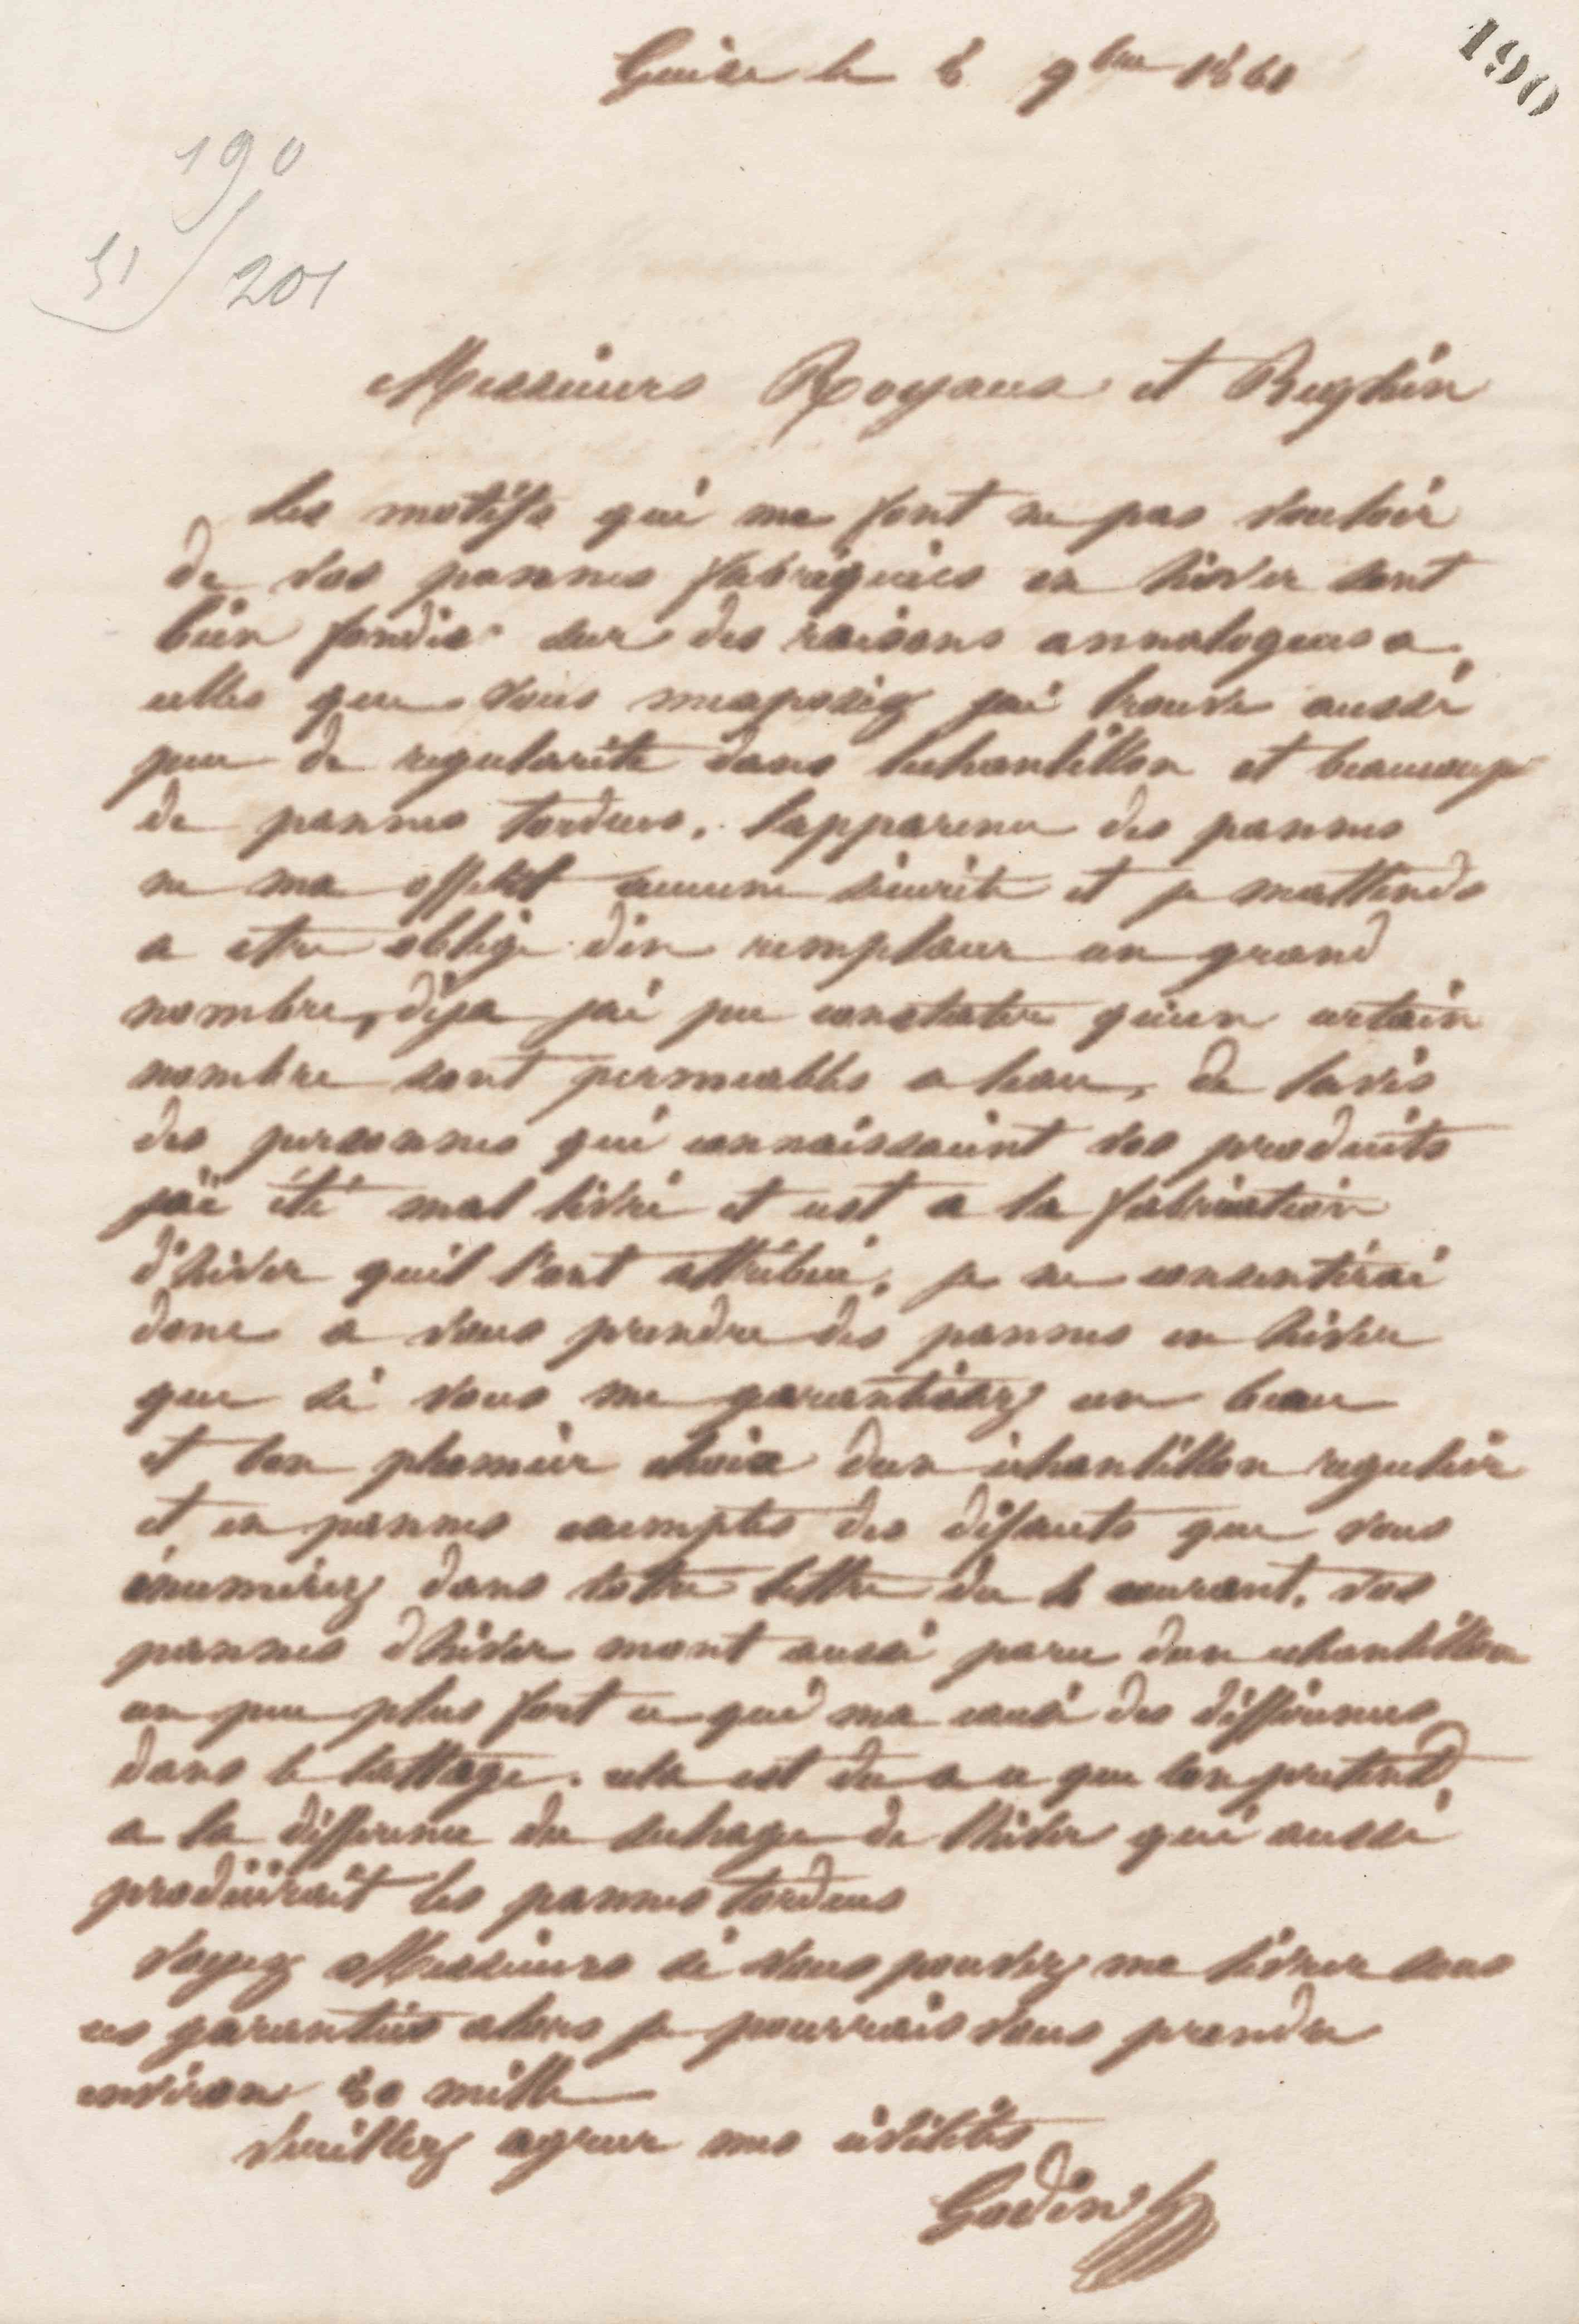 Guise le 8 9bre 1861
190
190
51/201
Messieurs Royaux et Beghin
les motifs qui me font ne pas vouloir
de vos pannes fabriquées en hiver sont
bien fondés sur des raisons annalogues a
celles que vous mexposez jai trouvé aussi
peu de regularité dans lechantillon et beaucoup
de pannes tordues. lapparence des pannes
ne ma offert aucune sécurité et je mattends
a etre obligé den remplacer un grand
nombre, déja jai pu constater quun certain
nombre sont permeables a leau, de lavis
des personnes qui connaissaient vos produits
jai été mal livré et cest a la fabrication
d'hiver quil l'ont attribué, je ne consentirai
donc a vous prendre des pannes en hiver
que si vous me garantissez un beau
et bon premier choix dun échantillon regulier
et en pannes exemptes des défauts que vous
énumérez dans votre lettre du courant. vos
pannes dhiver mont aussi paru dun echantillon
un peu plus fort ce qui ma causé des différences
dans le lattage. cela est du a ce que lon pretend
a la différence du sechage de lhiver qui aussi
produirait les pannes tordues
Voyez Messieurs si vous pouvez me livrer sous
ces garanties alors je pourrais vous prendre
environ 20 mille
Veuillez agreer mes civilités
Godin